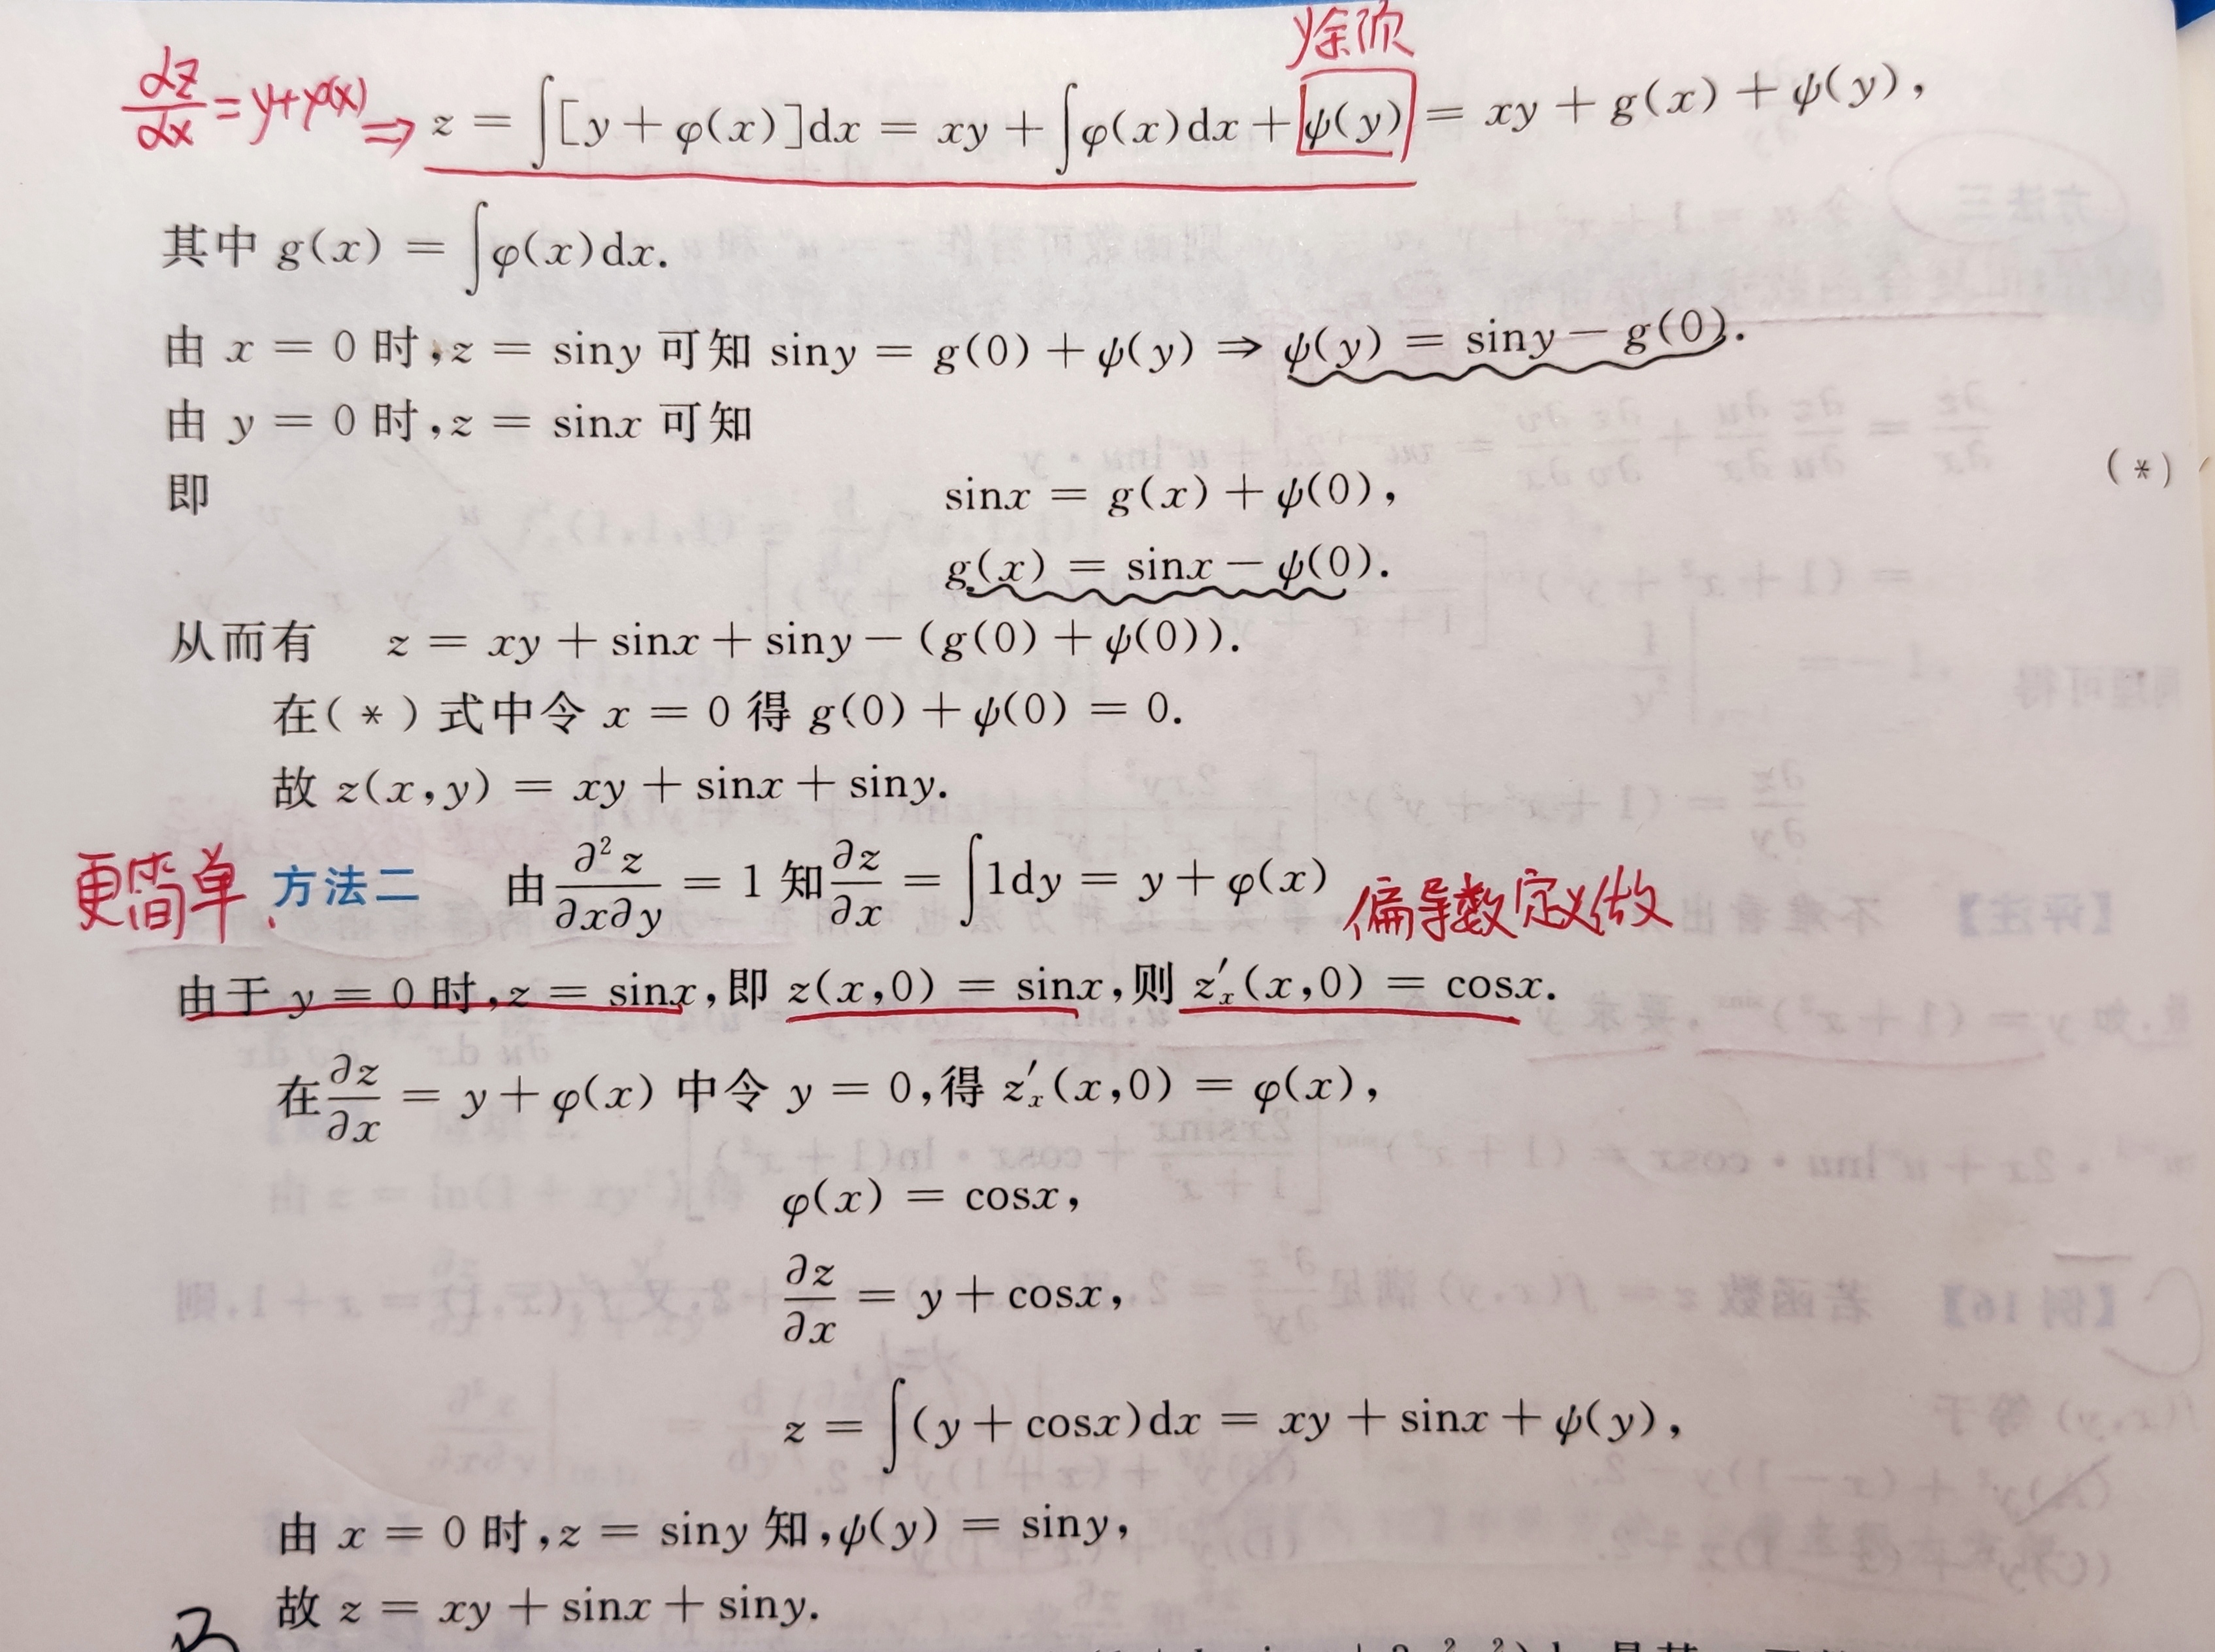 余项
dz/dx = y+φ(x) ⇒ z = ∫[y + φ(x)]dx = xy + ∫φ(x)dx + ψ(y) = xy + g(x) + ψ(y),
其中 g(x) = ∫φ(x)dx.
由 x = 0 时,z = siny 可知 siny = g(0) + ψ(y) ⇒ ψ(y) = siny − g(0).
由 y = 0 时,z = sinx 可知
(*)
即 sinx = g(x) + ψ(0),
g(x) = sinx − ψ(0).
从而有 z = xy + sinx + siny − (g(0) + ψ(0)).
在(*)式中令 x = 0 得 g(0) + ψ(0) = 0.
故 z(x,y) = xy + sinx + siny.
更简单. 方法二 由 ∂²z/∂x∂y = 1 知 ∂z/∂x = ∫1dy = y + φ(x) 偏导数定义做
由于 y = 0 时,z = sinx,即 z(x,0) = sinx,则 z′ₓ(x,0) = cosx.
在 ∂z/∂x = y + φ(x) 中令 y = 0,得 z′ₓ(x,0) = φ(x),
φ(x) = cosx,
∂z/∂x = y + cosx,
z = ∫(y + cosx)dx = xy + sinx + ψ(y),
由 x = 0 时,z = siny 知,ψ(y) = siny,
故 z = xy + sinx + siny.